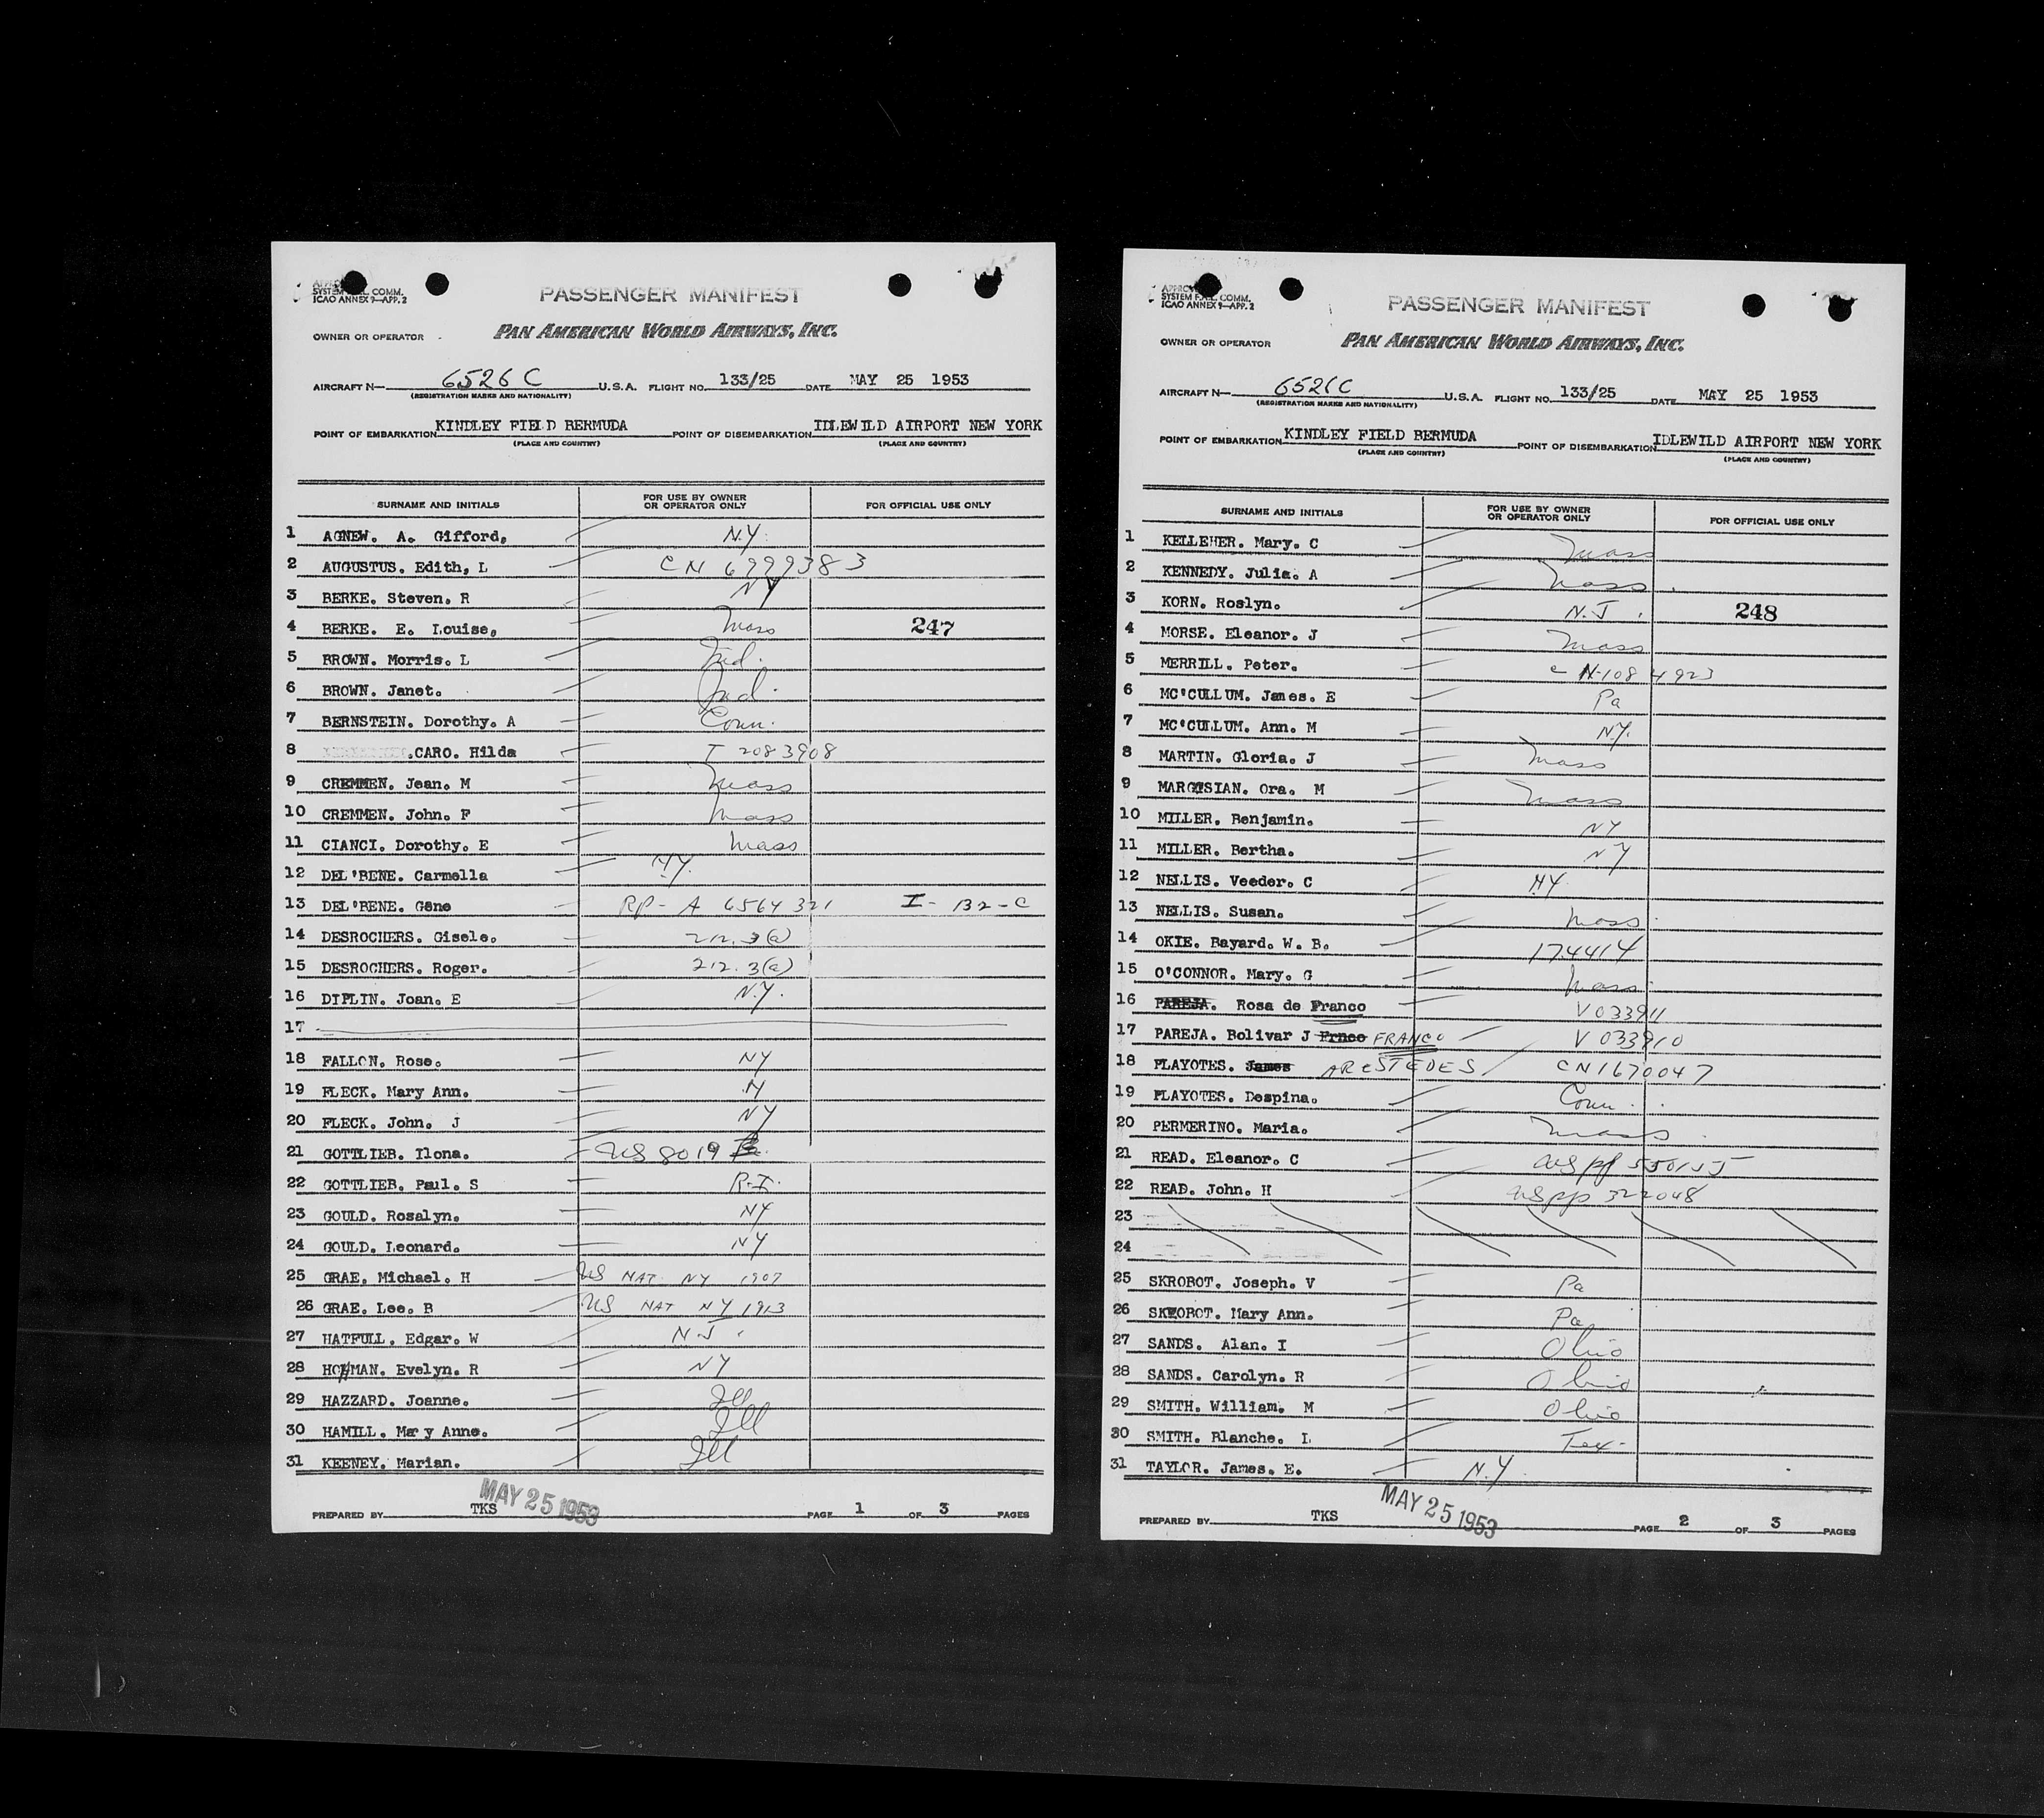 SYSTEM F.A.L. COMM.
ICAO ANNEX 9—APP. 2
PASSENGER MANIFEST
OWNER OR OPERATOR PAN AMERICAN WORLD AIRWAYS, INC.
AIRCRAFT N— 6526 C U.S.A. FLIGHT NO. 133/25 DATE MAY 25 1953
(REGISTRATION MARKS AND NATIONALITY)
POINT OF EMBARKATION KINDLEY FIELD BERMUDA POINT OF DISEMBARKATION IDLEWILD AIRPORT NEW YORK
(PLACE AND COUNTRY) (PLACE AND COUNTRY)
SURNAME AND INITIALS FOR USE BY OWNER OR OPERATOR ONLY FOR OFFICIAL USE ONLY
1 AGNEW. A. Gifford. N.Y.
2 AUGUSTUS. Edith, L CN 6999383
3 BERKE. Steven. R NY
4 BERKE. E. Louise, Mass 247
5 BROWN. Morris. L Ind.
6 BROWN. Janet. Ind.
7 BERNSTEIN. Dorothy. A Conn.
8 .CARO. Hilda T 2083908
9 CREMMEN. Jean. M Mass
10 CREMMEN. John. F Mass
11 CIANCI. Dorothy. E Mass
12 DEL'BENE. Carmella NY.
13 DEL'BENE. Gene RP- A 6564321 I- B2-C
14 DESROCHERS. Gisele. 212.3(a)
15 DESROCHERS. Roger. 212.3(a)
16 DIPLIN. Joan. E N.Y.
17
18 FALLON. Rose. NY
19 FLECK. Mary Ann. NY
20 FLECK. John. J NY
21 GOTTLIEB. Ilona. US 8019
22 GOTTLIEB. Paul. S R.I.
23 GOULD. Rosalyn. NY
24 GOULD. Leonard. NY
25 GRAE. Michael. H US NAT NY 1907
26 GRAE. Lee. B US NAT NY 1913
27 HATFULL. Edgar. W N.J.
28 HOFMAN. Evelyn. R NY
29 HAZZARD. Joanne. Ill
30 HAMILL. Mary Anne. Ill
31 KEENEY. Marian. Ill
MAY 25 1953
PREPARED BY TKS PAGE 1 OF 3 PAGES
APPROVED
SYSTEM F.A.L. COMM.
ICAO ANNEX 9—APP. 2
PASSENGER MANIFEST
OWNER OR OPERATOR PAN AMERICAN WORLD AIRWAYS, INC.
AIRCRAFT N— 6526C U.S.A. FLIGHT NO. 133/25 DATE MAY 25 1953
(REGISTRATION MARKS AND NATIONALITY)
POINT OF EMBARKATION KINDLEY FIELD BERMUDA POINT OF DISEMBARKATION IDLEWILD AIRPORT NEW YORK
(PLACE AND COUNTRY) (PLACE AND COUNTRY)
SURNAME AND INITIALS FOR USE BY OWNER OR OPERATOR ONLY FOR OFFICIAL USE ONLY
1 KELLEHER. Mary. C Mass
2 KENNEDY. Julia. A Mass
3 KORN. Roslyn. N.J. 248
4 MORSE. Eleanor. J Mass
5 MERRILL. Peter. CN-1084923
6 MC'CULLUM. James. E Pa
7 MC'CULLUM. Ann. M NY.
8 MARTIN. Gloria. J Mass
9 MARGOSIAN. Ora. M Mass
10 MILLER. Benjamin. NY
11 MILLER. Bertha. NY
12 NELLIS. Veeder. C NY
13 NELLIS. Susan. Mass.
14 OKIE. Bayard. W. B. 174414
15 O'CONNOR. Mary. G Mass.
16 PAREJA. Rosa de Franco V 033911
17 PAREJA. Bolivar J Frnco FRANCO V 033910
18 PLAYOTES. James ARESTEDES CN1670047
19 PLAYOTES. Despina. Conn.
20 PERMERINO. Maria. Mass.
21 READ. Eleanor. C US pp 550155
22 READ. John. H US pp 322048
23
24
25 SKROBOT. Joseph. V Pa
26 SKROBOT. Mary Ann. Pa
27 SANDS. Alan. I Ohio
28 SANDS. Carolyn. R Ohio
29 SMITH. William. M Ohio
30 SMITH. Blanche. L Tex.
31 TAYLOR. James. E. N.Y.
MAY 25 1953
PREPARED BY TKS PAGE 2 OF 3 PAGES